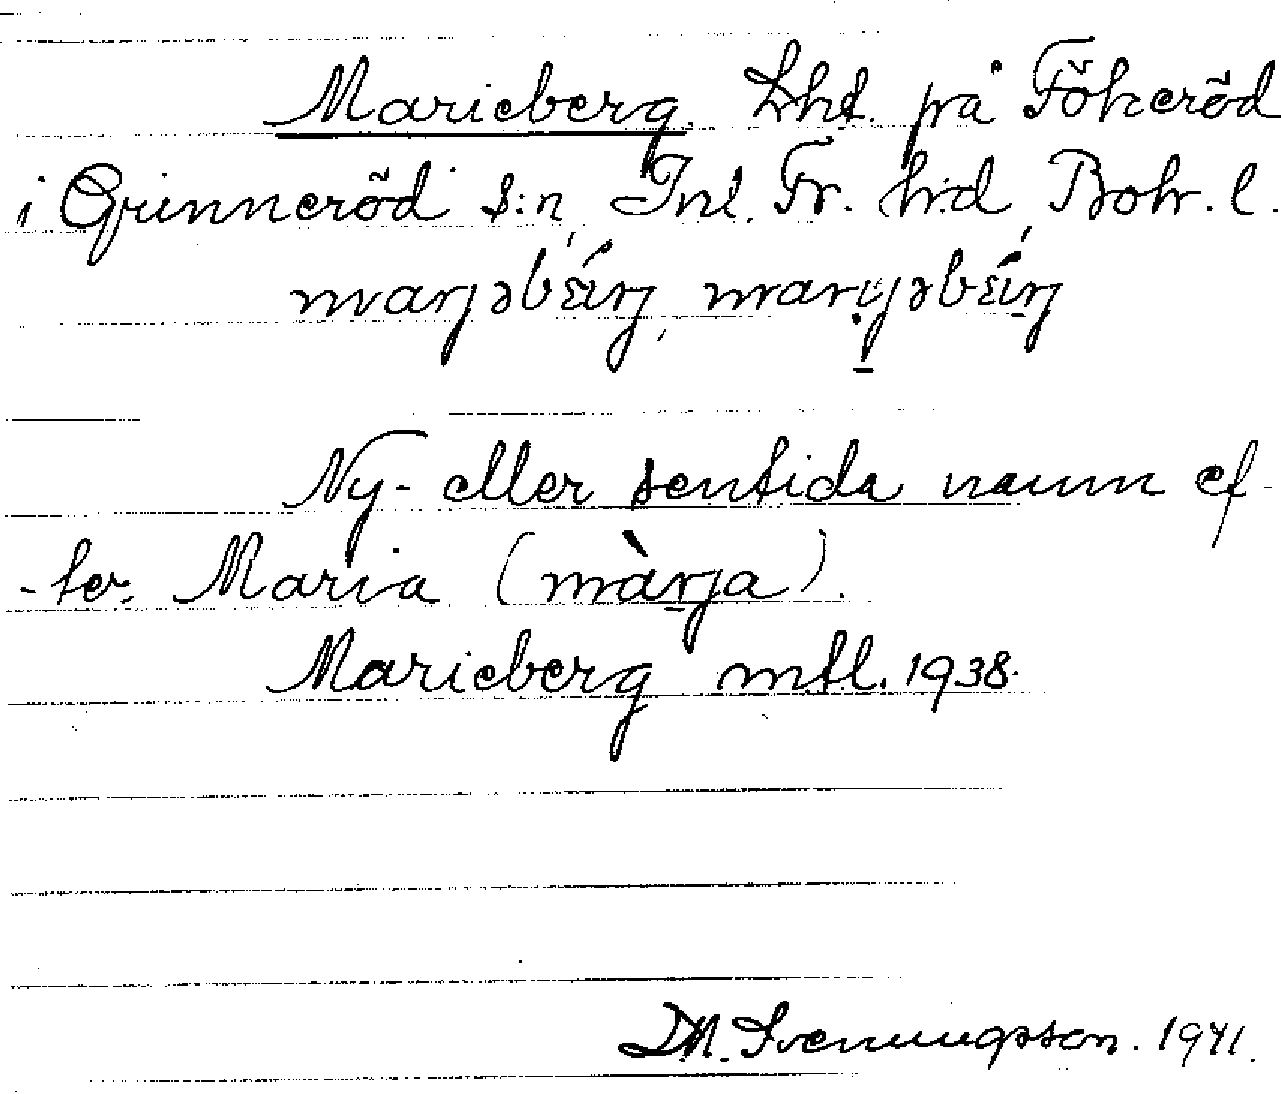 Marieberg. Lht. på Fökeröd
i Grinneröd s:n, Inl. Fr. h:d Boh. l.
marjəbɛ́rj, marjəbɛ́rj
Ny- eller sentida namn ef-
-ter Maria (màrja).
Marieberg mtl. 1938.
D.M. Svenningsson. 1941.